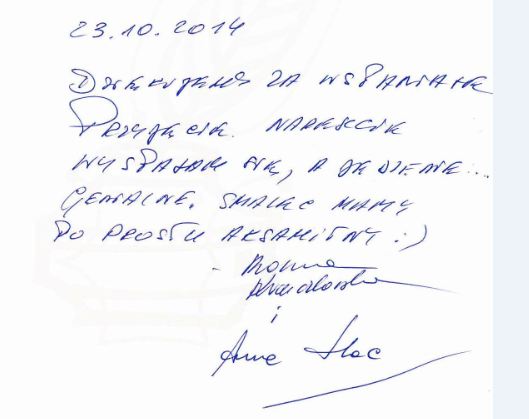 23.10.2014
DZIĘKUJEMY ZA WSPANIAŁE
PRZYJĘCIE. NARESZCIE
WYSPAŁAM SIĘ, A JEDZENIE...
GENIALNE. SMALEC MAMY
PO PROSTU AKSAMITNY :)
i
Anna